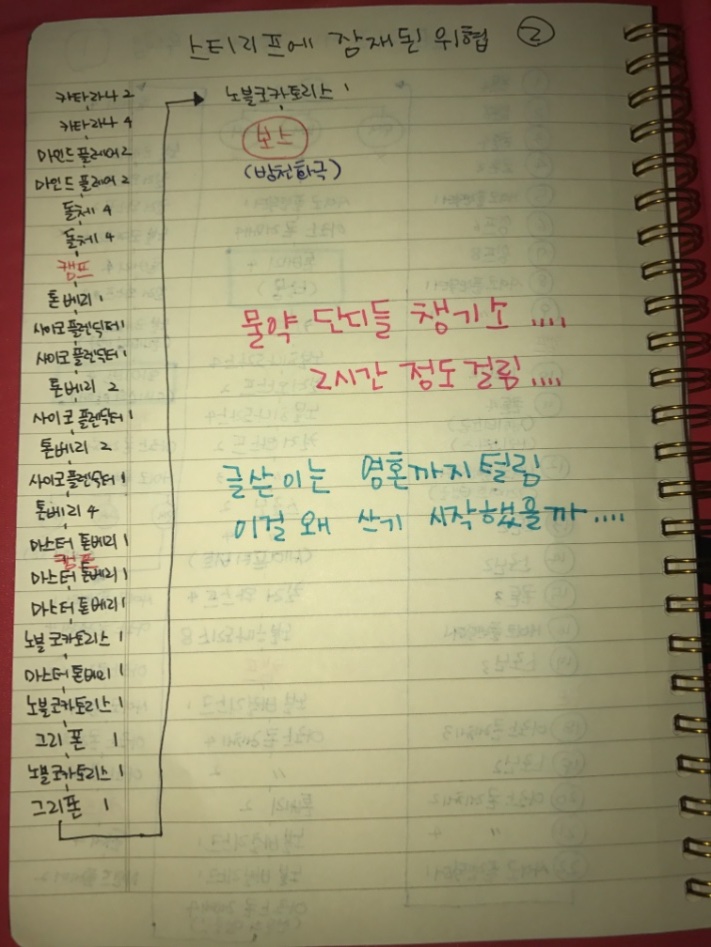 스티리프에 잠재된 위협 ②
카타라나 2
카타라나 4
마인드플레어 2
마인드플레어 2
돌체 4
돌체 4
캠프
톤베리 1
사이코플렌덕터 1
사이코플렌덕터 1
톤베리 2
사이코플렌덕터 1
톤베리 2
사이코플렌덕터 1
톤베리 4
마스터 톤베리 1
캠프
마스터 톤베리 1
마스터 톤베리 1
노블코카토리스 1
마스터 톤베리 1
노블코카토리스 1
그리폰 1
노블코카토리스 1
그리폰 1
노블코카토리스 1
보스
(방천화극)
물약 단디들 챙기소 ....
2시간 정도걸림....
글쓴이는 영혼까지털림
이걸 왜 쓰기 시작했을까....